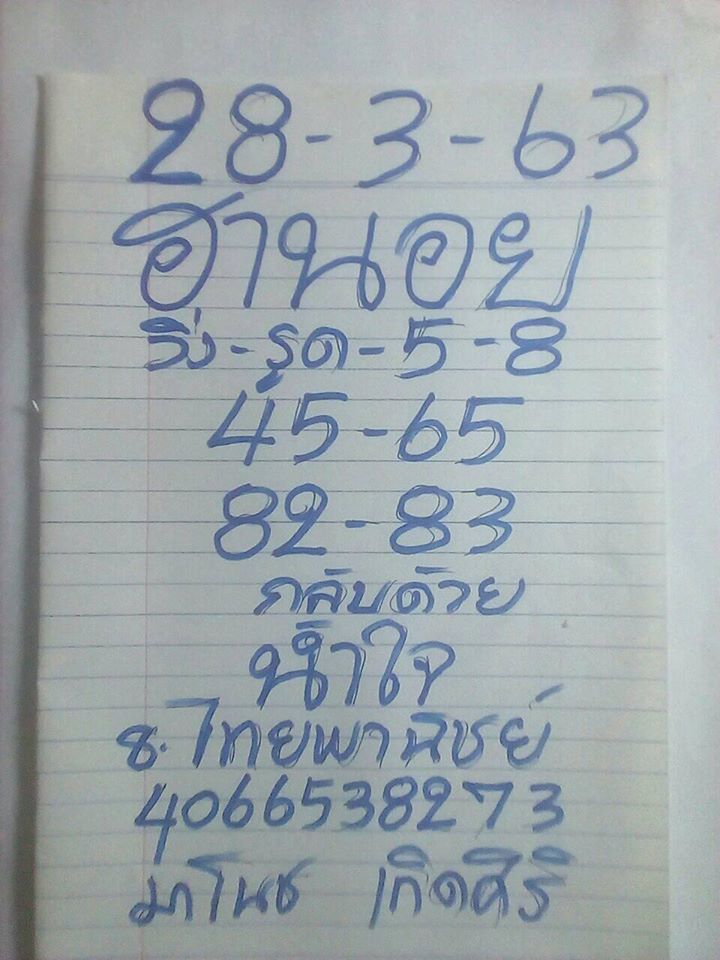 28-3-63
ฮานอย
วิ่ง-รูด-5-8
45-65
82-83
กลับด้วย
น้ำใจ
ธ.ไทยพานิชย์
4066538273
มาโนช เกิดศิริ